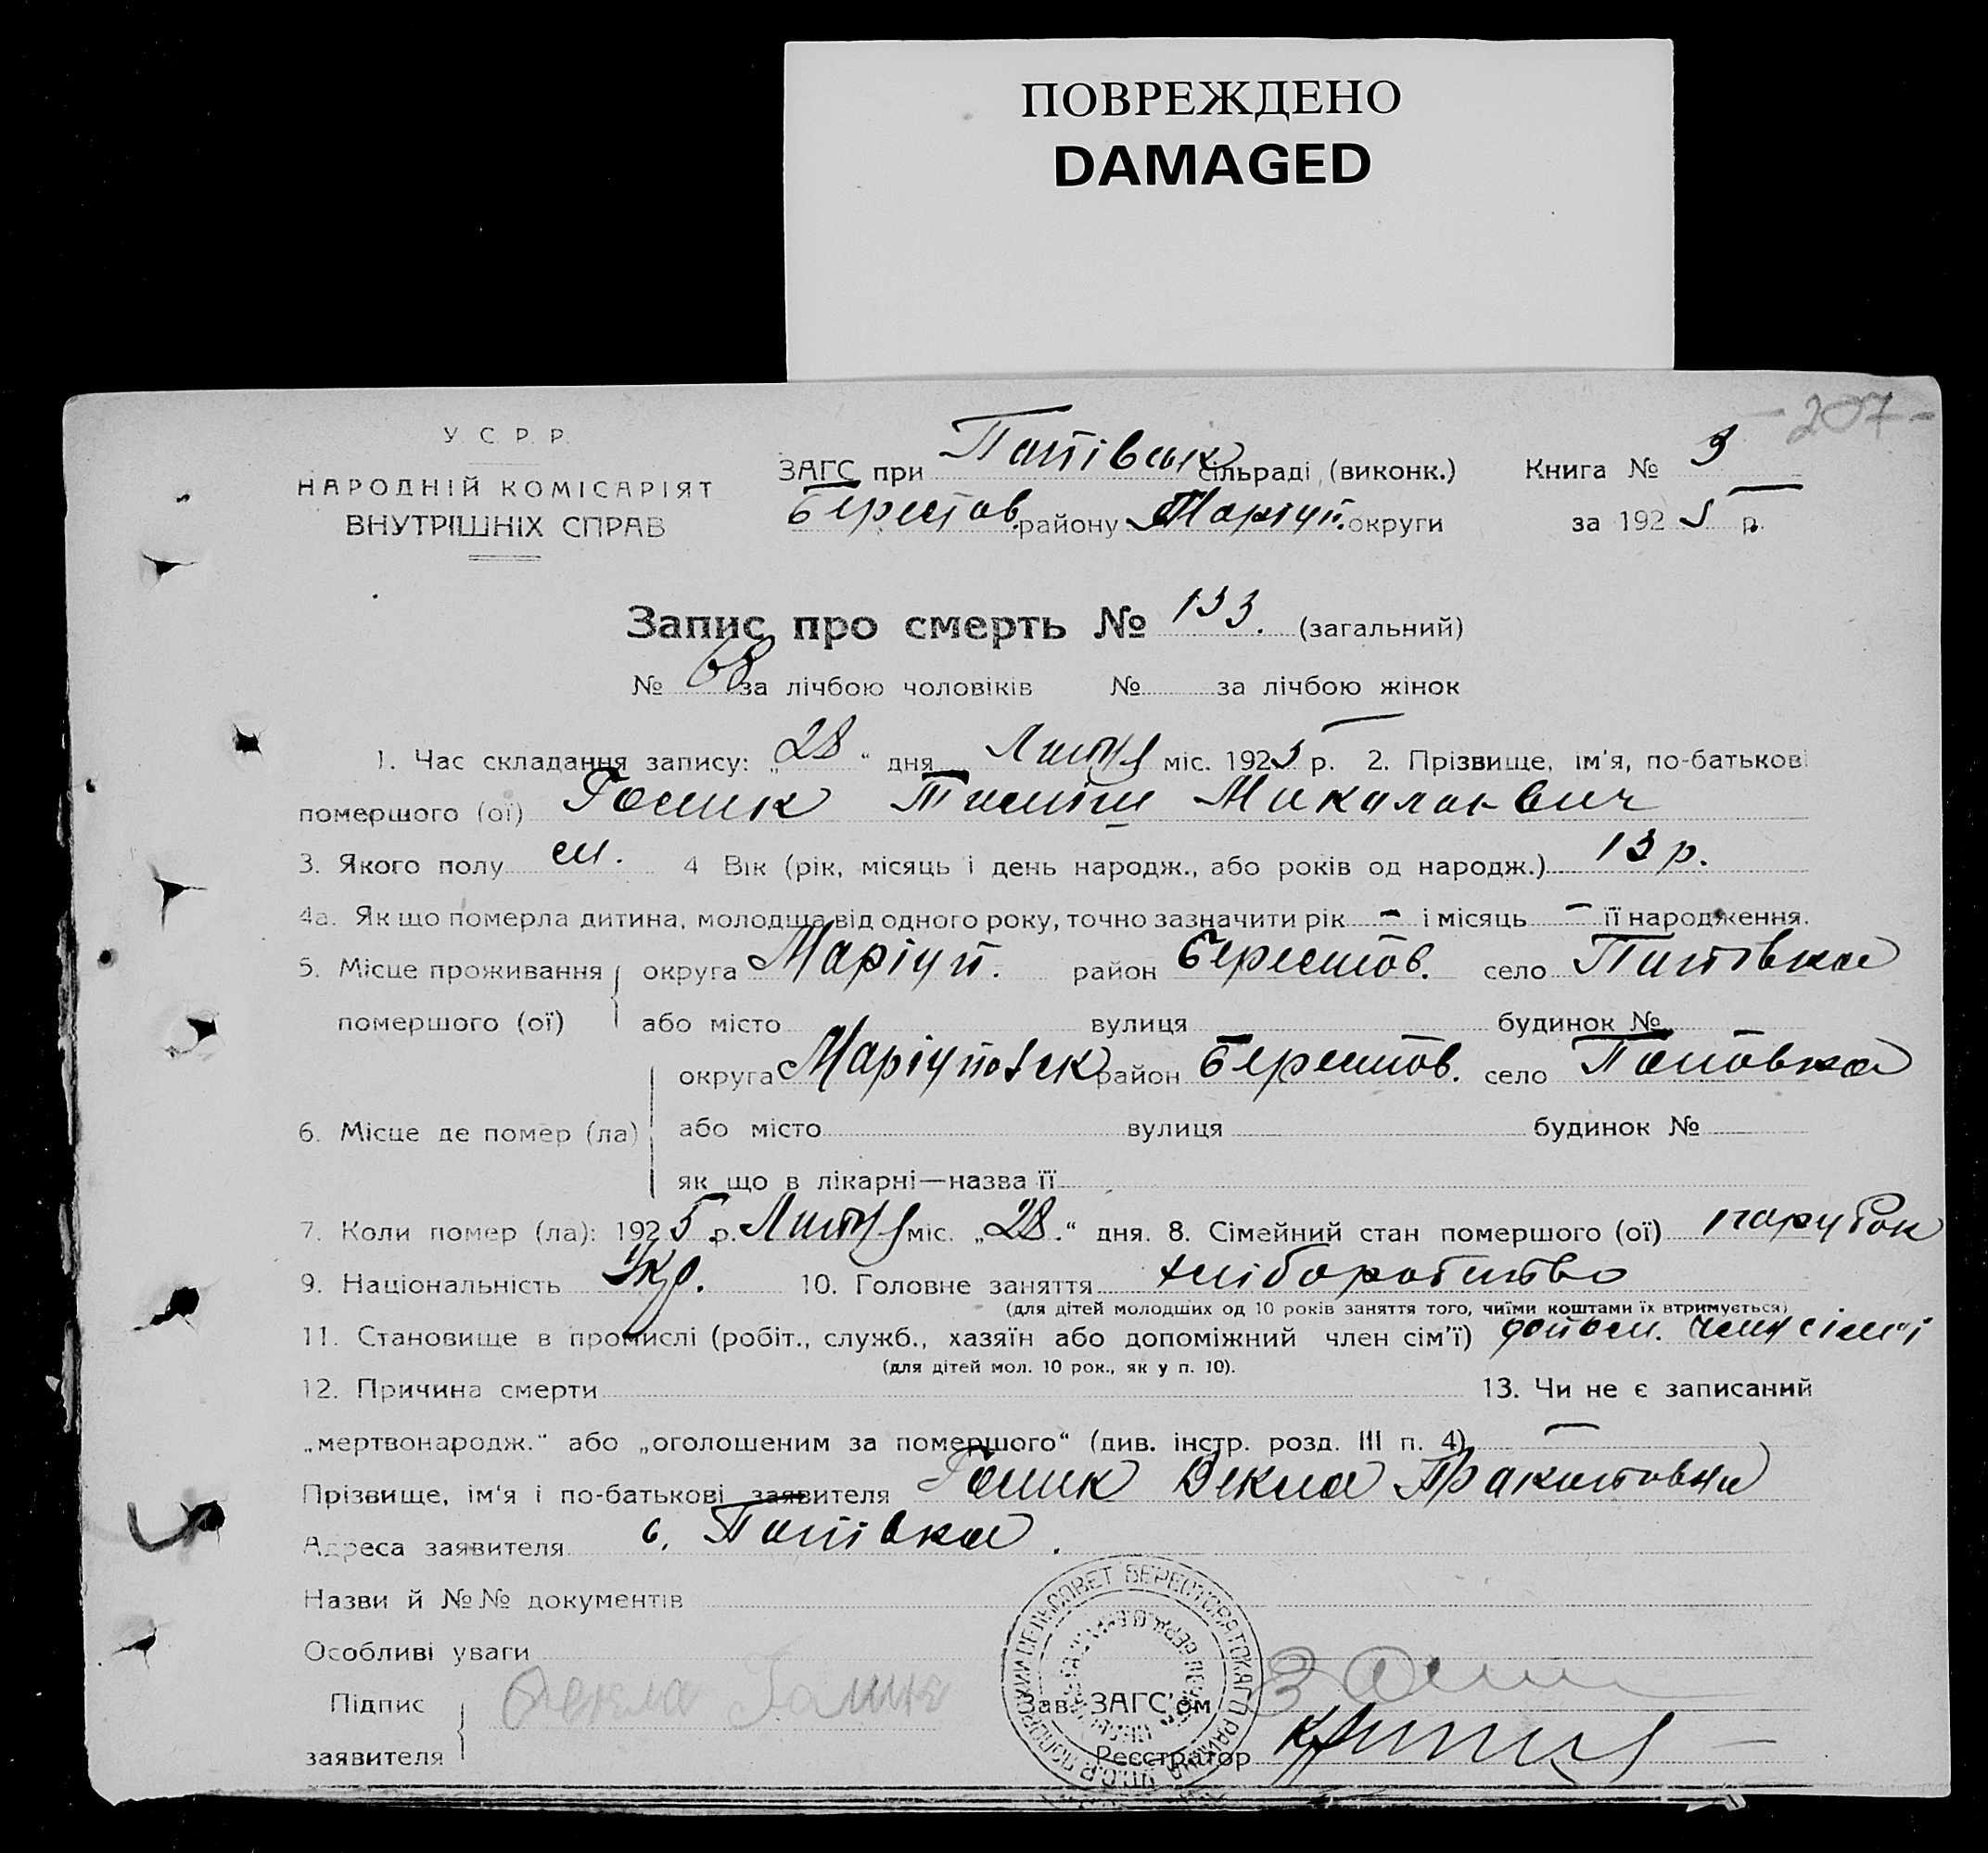 ПОВРЕЖДЕНО
DAMAGED
207
У. С. Р. Р.
НАРОДНІЙ КОМІСАРІЯТ
ВНУТРІШНІХ СПРАВ
ЗАГС при Попівськ сільраді (виконк.) Книга № 3
Берестов. району Маріуп. округи за 1925 р.
Запис про смерть № 133. (загальний)
№ 68 за лічбою чоловіків № за лічбою жінок
1. Час складання запису: „28“ дня міс. 1925 р. 2. Прізвище, ім'я, по-батькові
помершого (ої) Гомик Миколаєвич
3. Якого полу ч. 4 Вік (рік, місяць і день народж., або років од народж.) 13 р.
4а. Як що померла дитина, молодша від одного року, точно зазначити рік – і місяць – її народження.
5. Місце проживання округа Маріуп. район Берестов. село Попівка
помершого (ої) або місто вулиця будинок №
округа Маріупольск район Берестов. село Поповка
6. Місце де помер (ла) або місто вулиця будинок №
як що в лікарні—назва її
7. Коли помер (ла): 1925 р. міс. „28.“ дня. 8. Сімейний стан помершого (ої) парубок
9. Національність Укр. 10. Головне заняття хліборобство
(для дітей молодших од 10 років заняття того, чиїми коштами їх втримується)
11. Становище в промислі (робіт., служб., хазяїн або допоміжний член сім'ї) допом. член сім'ї
(для дітей мол. 10 рок., як у п. 10).
12. Причина смерти 13. Чи не є записаний
„мертвонародж.“ або „оголошеним за помершого“ (див. інстр. розд. III п. 4) —
Прізвище, ім'я і по-батькові заявителя Гомик Векла
Адреса заявителя с. Попівка.
Назви й №№ документів
Особливі уваги
Підпис
заявителя
Зав. ЗАГС'ом
Реєстратор